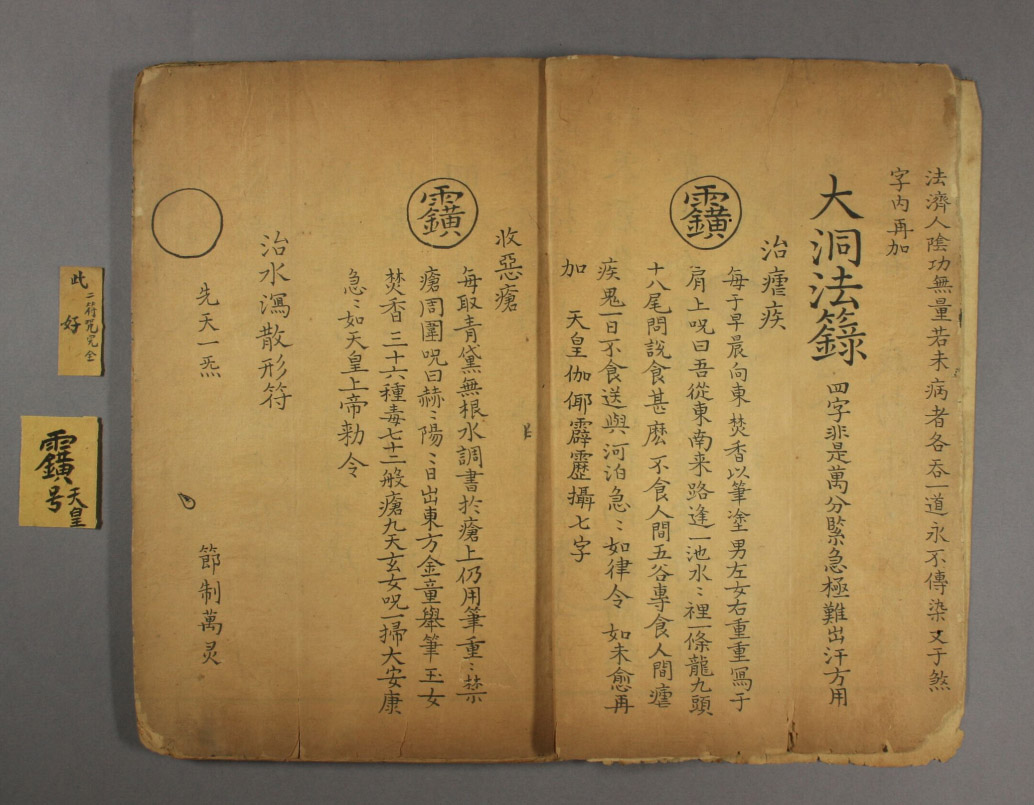 法濟人陰功無量若未病者各吞一道永不傳染又于煞
字內再加
大洞法籙 四字非是萬分緊急極難出汗方用
治瘧疾
每于早晨向東焚香以筆塗男左女右重重寫于
肩上呪曰吾從東南來路逢一池水〻裡一條龍九頭
十八尾問說食甚麽不食人間五谷專食人間瘧
疾鬼一日不食送與河泊急〻如律令 如未愈再
加 天皇伽倻霹靂攝七字
收惡瘡
每取青黛無根水調書於瘡上仍用筆重〻
瘡周圍呪曰赫〻陽〻日出東方金童舉筆玉女
焚香三十六種毒七十二般瘡九天玄女呪一掃大安康
急〻如天皇上帝勅令
治水瀉散形符
先天一炁 節制萬灵
此二符咒完全
好
天皇
号